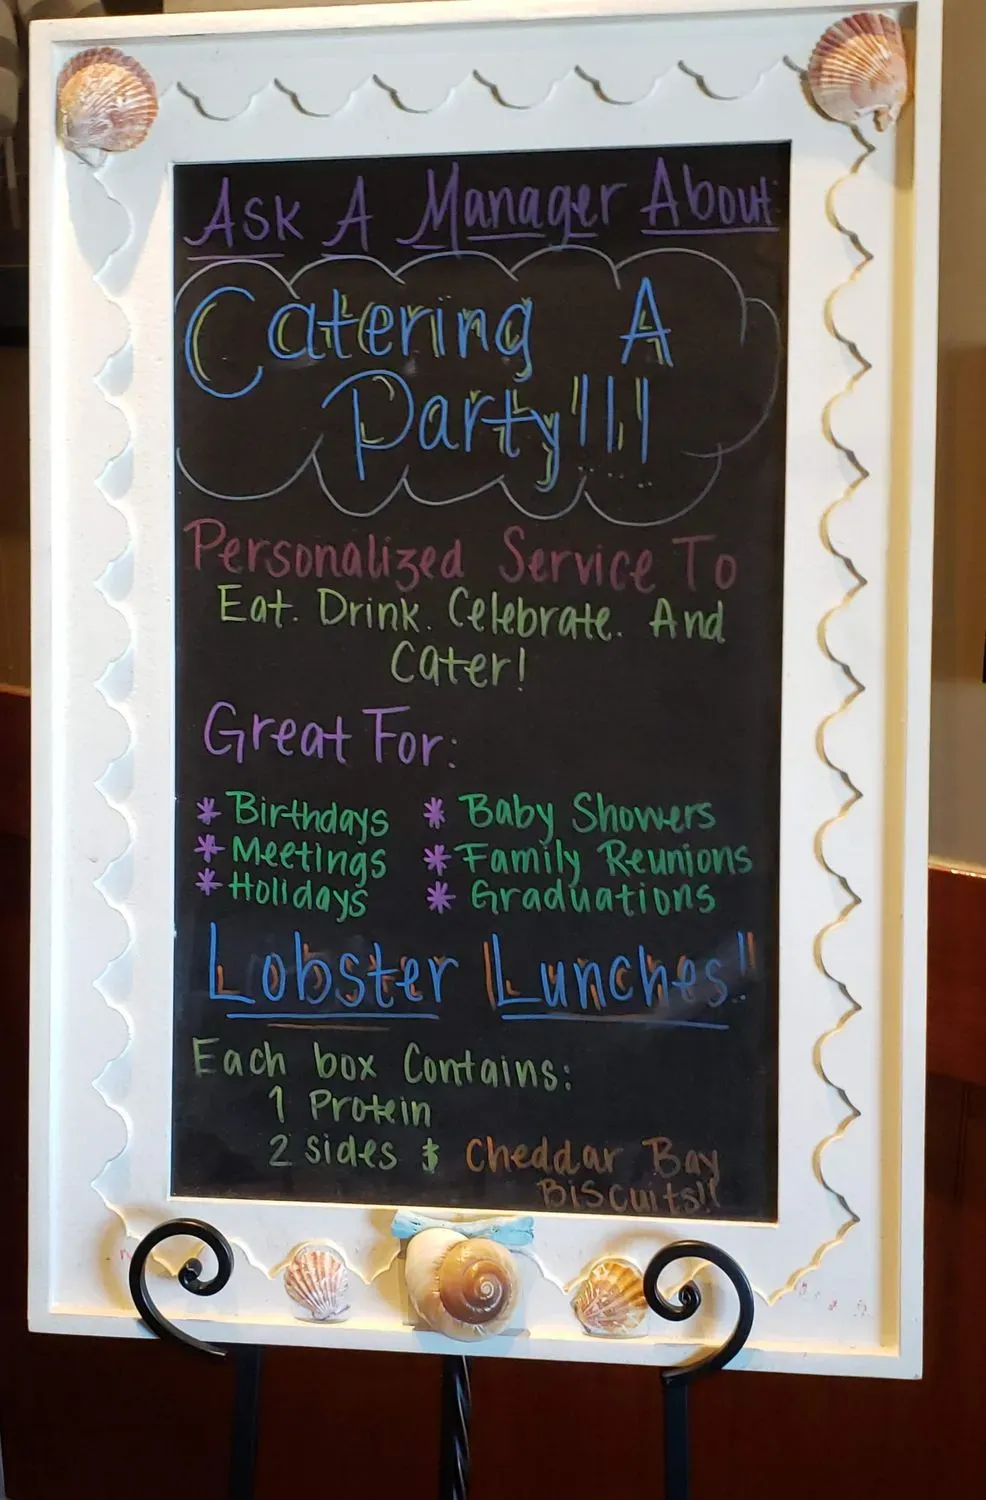 Ask A Manager About
Catering A
Party!!!
Personalized Service To
Eat. Drink. Celebrate. And
Cater!
Great For:
* Birthdays * Baby Showers
* Meetings * Family Reunions
* Holidays * Graduations
Lobster Lunches!!
Each box Contains:
1 Protein
2 sides & Cheddar Bay
Biscuits!!